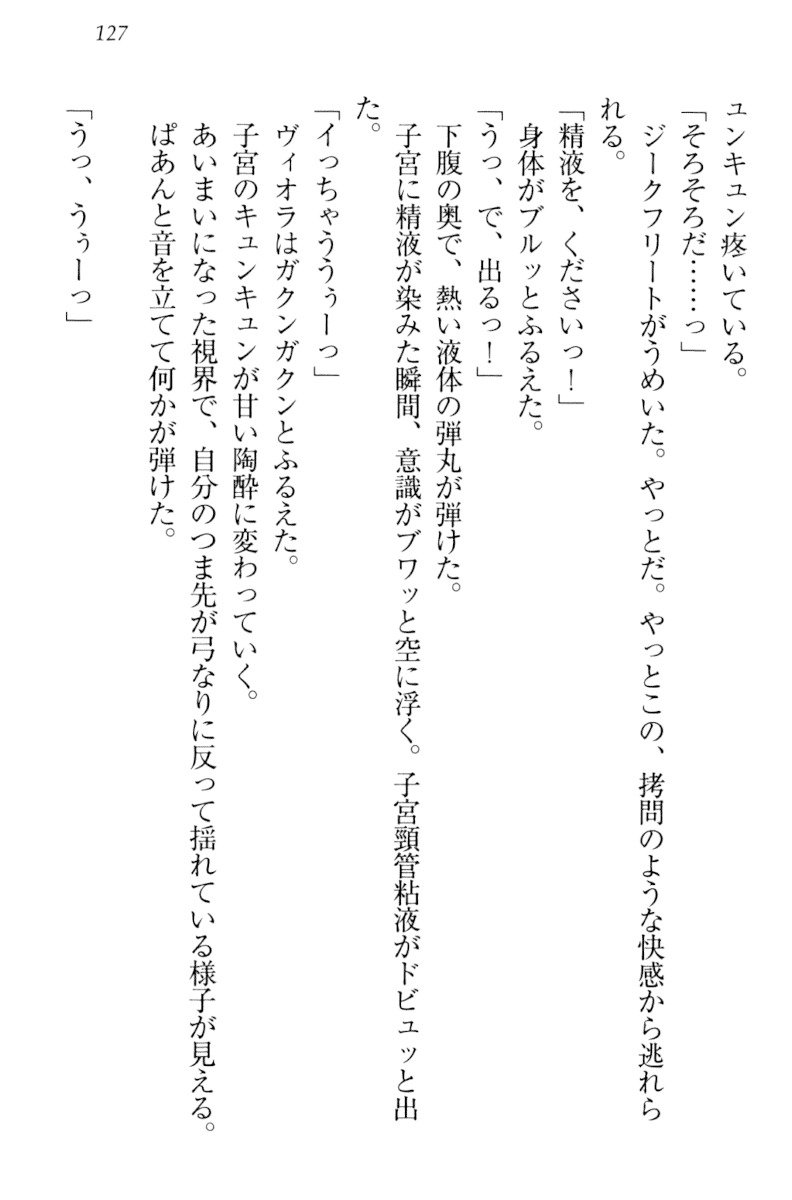 127
ュンキュン疼いている。
「そろそろだ……っ」
ジークフリートがうめいた。やっとだ。やっとこの、拷問のような快感から逃れら
れる。
「精液を、くださいっ！」
身体がブルッとふるえた。
「うっ、で、出るっ！」
下腹の奥で、熱い液体の弾丸が弾けた。
子宮に精液が染みた瞬間、意識がブワッと空に浮く。子宮頸管粘液がドビュッと出
た。
「イっちゃううぅーっ」
ヴィオラはガクンガクンとふるえた。
子宮のキュンキュンが甘い陶酔に変わっていく。
あいまいになった視界で、自分のつま先が弓なりに反って揺れている様子が見える。
ぱあんと音を立てて何かが弾けた。
「うっ、うぅーっ」